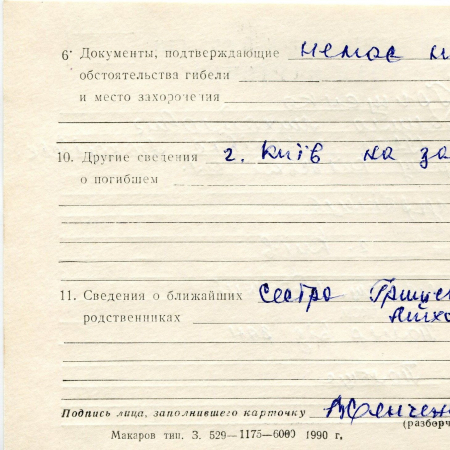 6. Документы, подтверждающие немає
обстоятельства гибели
и место захоронения
10. Другие сведения г. Київ на за
о погибшем
11. Сведения о ближайших сестра Грицен
родственниках
Подпись лица, заполнившего карточку
(разборч
Макаров тип. З. 529—1175—6000 1990 г,